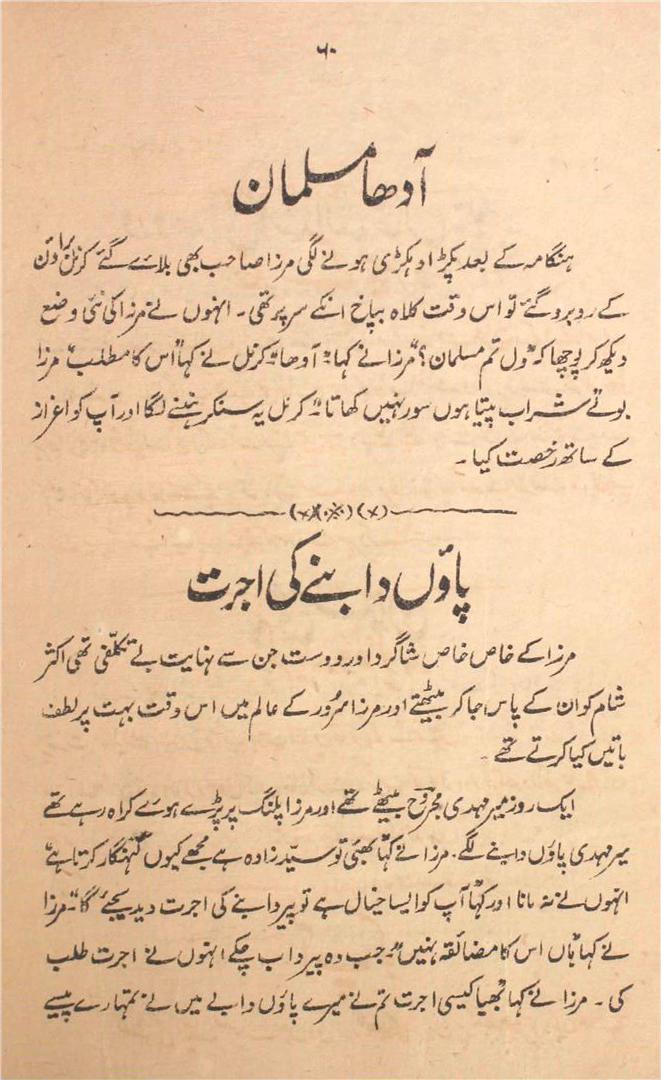 ۶۰
آدھا مسلمان
ہنگامہ کے بعد پکڑا دہکڑی ہونے لگی مرزا صاحب بھی بلائے گئے کرنل براؤن
کے روبرو گئے تو اس وقت کلاہ پپاخ انکے سر پر تھی۔ انہوں نے مرزا کی نئی وضع
دیکھ کر پوچھا کہ "ول تم مسلمان؟" مرزا نے کہا "آدھا" کرنل نے کہا "اس کا مطلب" مرزا
بولے شراب پیتا ہوں سور نہیں کھاتا" کرنل یہ سنکر ہنسنے لگا اور آپ کو اعزاز
کے ساتھ رخصت کیا۔
پاؤں دابنے کی اجرت
مرزا کے خاص خاص شاگرد اور دوست جن سے نہایت بے تکلفی تھی اکثر
شام کو ان کے پاس جا کر بیٹھتے اور مرزا سرور کے عالم میں اس وقت بہت پر لطف
باتیں کیا کرتے تھے۔
ایک روز میر مہدی مجروح بیٹھے تھے اور مرزا پلنگ پر پڑے ہوئے کراہ رہے تھے
میر مہدی پاؤں دابنے لگے۔ مرزا نے کہا "بھئی تو سید زادہ ہے مجھے کیوں گنہگار کرتا ہے"
انہوں نے نہ مانا اور کہا "آپ کو ایسا خیال ہے تو پیر دابنے کی اجرت دیدیجئے گا" مرزا
نے کہا "ہاں اس کا مضائقہ نہیں" جب وہ پیر داب چکے انہوں نے اجرت طلب
کی۔ مرزا نے کہا "بھیا کیسی اجرت تم نے میرے پاؤں دابے میں نے تمہارے پیسے